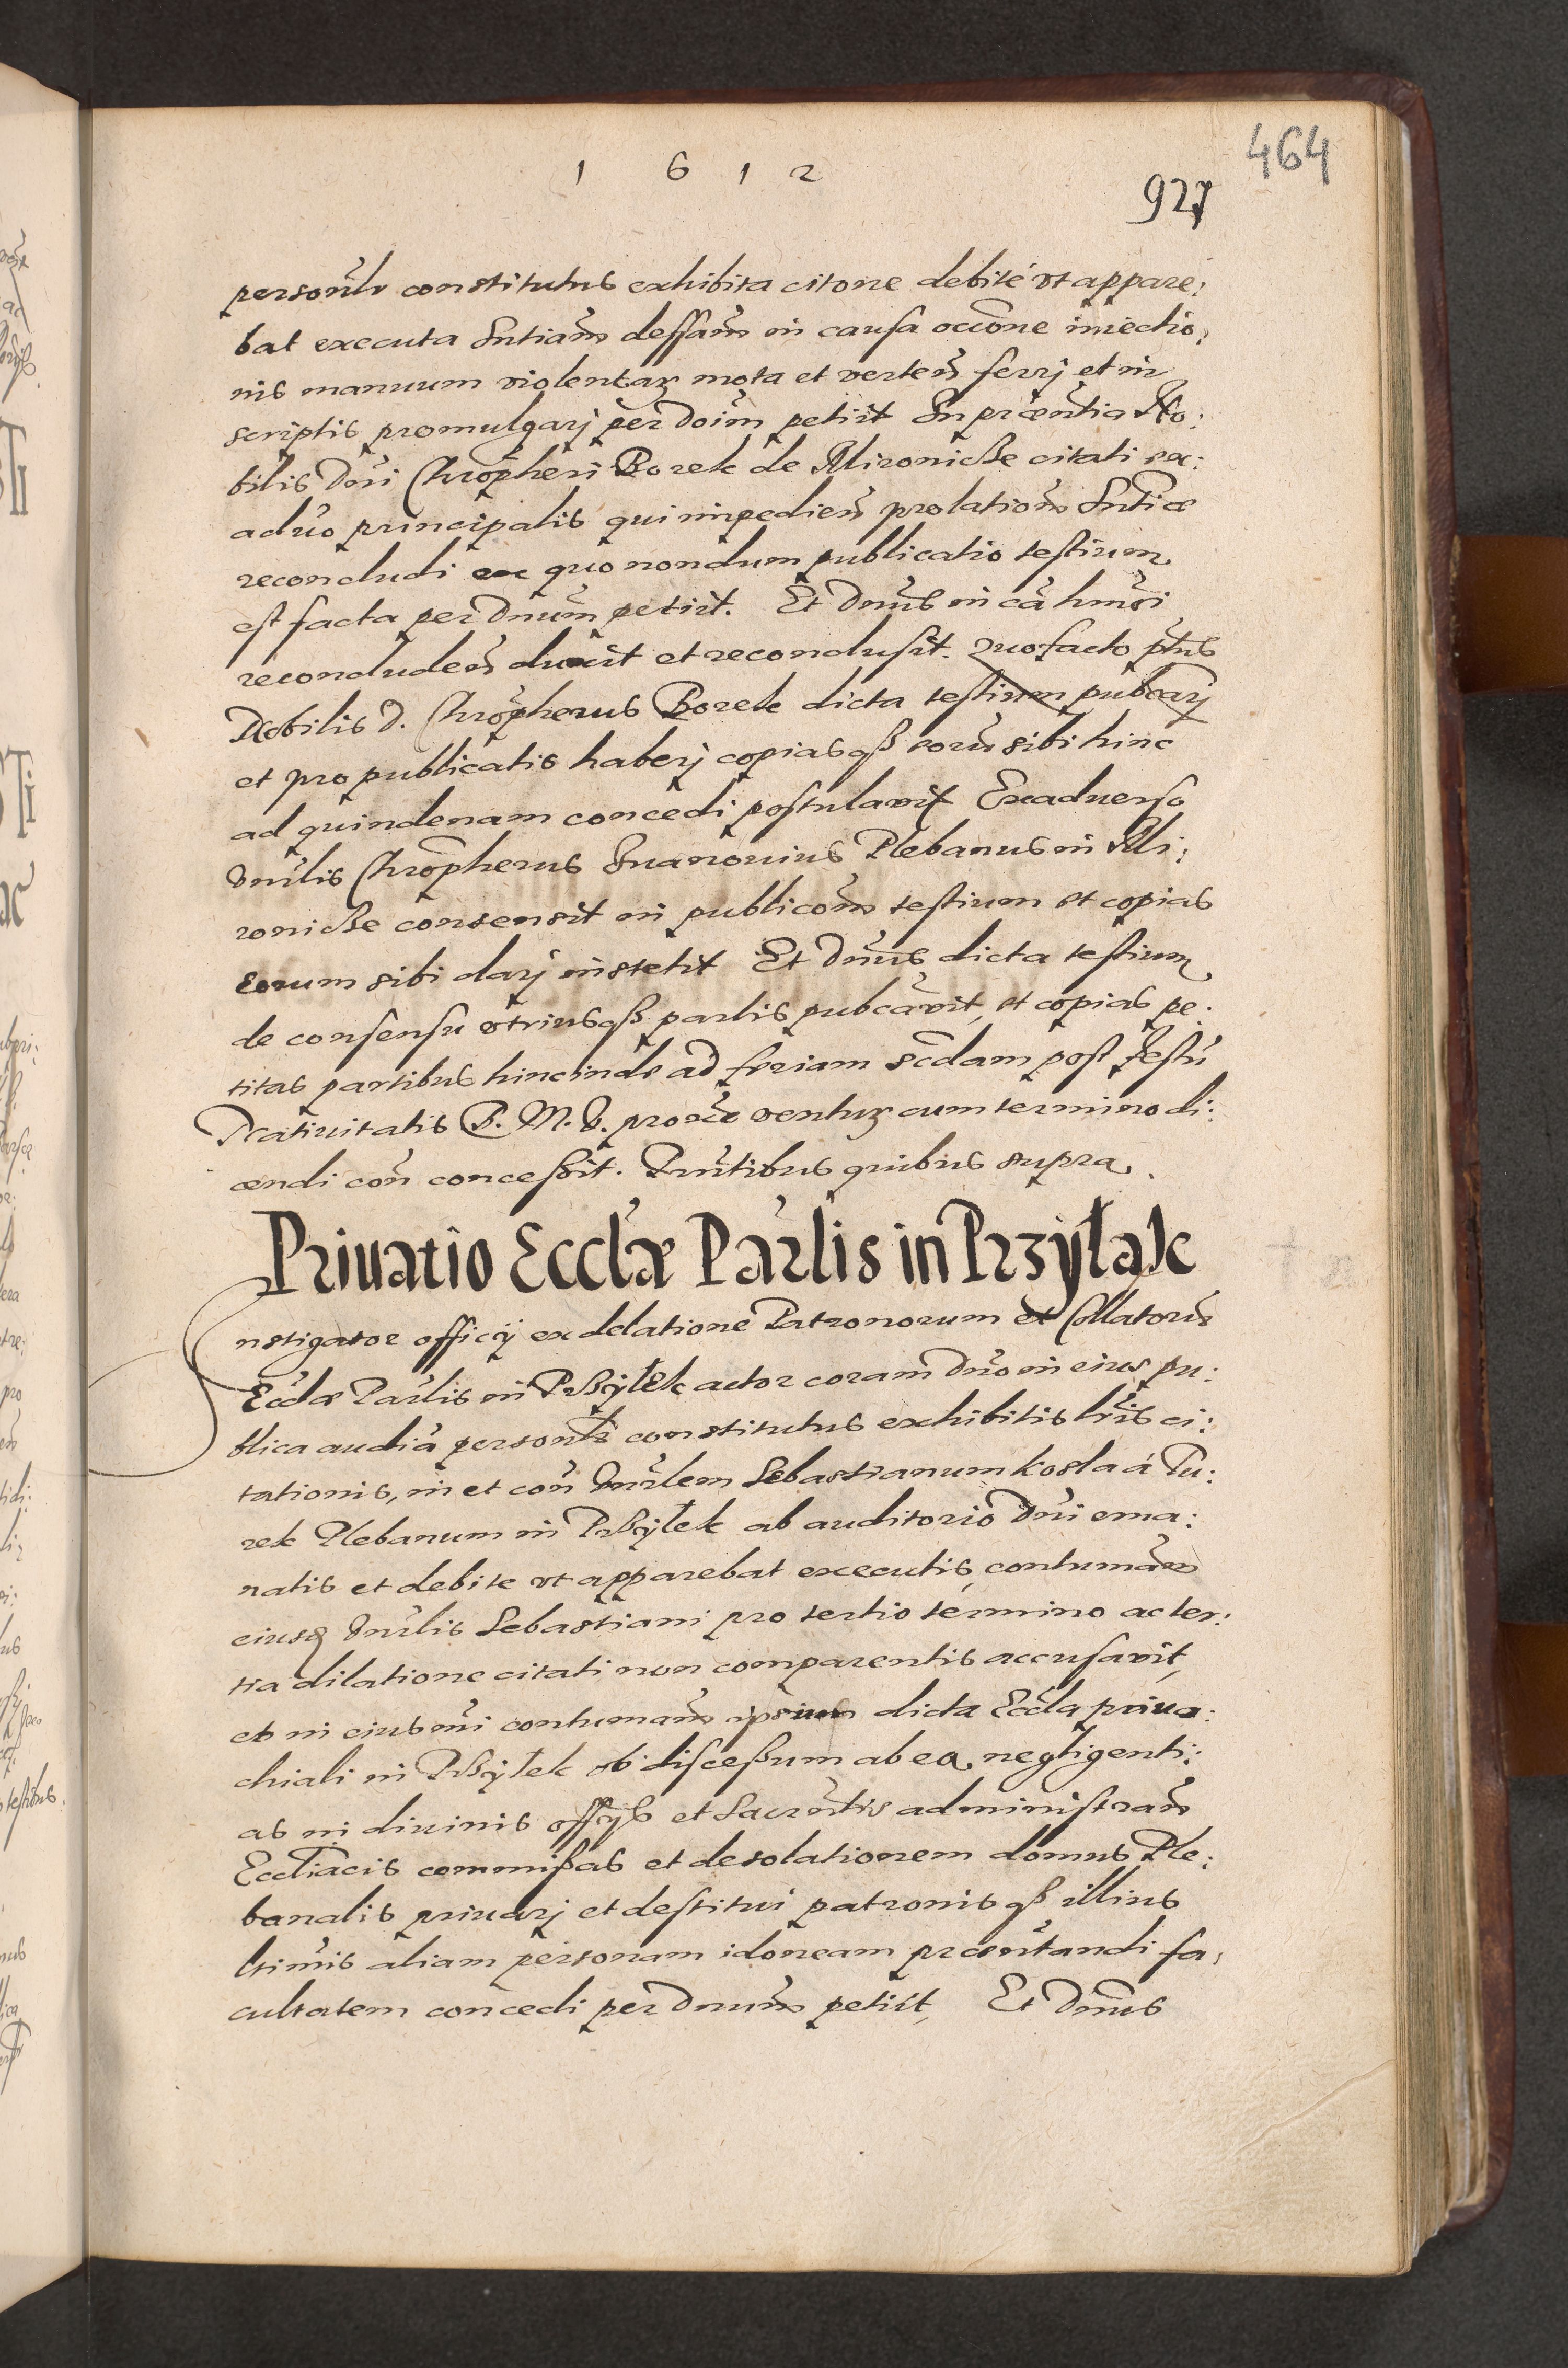 1 6 1 2
464
927
personlr constitutus exhibita citone debite vt appare:
bat executa Sntiam deffam in causa occone iniectio:
nis manuum violentaꝝ mota et verteñ ferrj et in
scriptis promulgarj per Dnim petiit In præntia No:
bilis Dni Chrōpheri Borek de Mironicße citati ex:
aduo principalis qui impedieñ prolationē Sntiæ
recondudi ex quo nondum publicatio testium
est facta per Dnum petiit. Et Dnus in ca hmōi
recondudeñ duxit et recondusit. Quo facto ptus
Nobilis D. Chrōpherus Borek dicta testium pubcarj
et pro publicatis haberj copias qß eorū sibi hinc
ad quindenam concedi postulavit Exaduerso
Vnrlis Chrōpherus Iuanouius Plebanus in Mi:
ronicße consensit in publicōm testium et copias
eorum sibi darj institit Et Dnus dicta testium
de consensu vtriusqß partis pubcavit, et copias pe:
titas partibus hincinde ad feriam scdam post festū
Natiuitatis B. M. V. proxe ventuꝝ cum termino di:
cendi coñ concessit. Pnntibus quibus supra.
Priuatio Ecclæ Parlis in Przytak
nstigator officij ex delatione Patronorum et Collatorū
Ecclæ Parlis in Przytek actor coram Dno in eius pu:
blica audiā personlr constitutus exhibitis lris ci:
tationis, in et coñ Vnrlem Sebastianum Kosla á Tu:
rek Plebanum in Przytek ab auditorio Dni ema:
natis et debite vt apparebat executis, contumām
eiusd Vnrlis Sebastiani pro tertio termino ac ter:
tia dilatione citati non comparentis accusavit,
et in eiusmi contumām ipsum dicta Eccla priua:
chiali in Przytek ob discessum ab ea, negligenti:
as in divinis offijs et Sacrntis administrañ
Eccliacis commissas et desolationem domus Ple:
banalis priuarj et destitui patronis qß illius
ltimis aliam personam idoneam præntandi fa:
cultatem concedi per Dnum petiit, Et Dnus